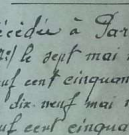 écédée à Par
le sept mai
uf cent cinquan
dix-neuf mai
uf cent cinqua